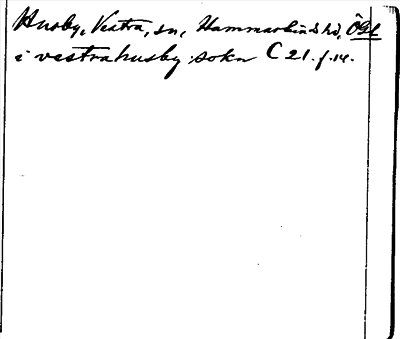 Husby, Vestra, sn, Hammarkinds hd, Ögl
i vestrahusby sokn C 21. f. 14.